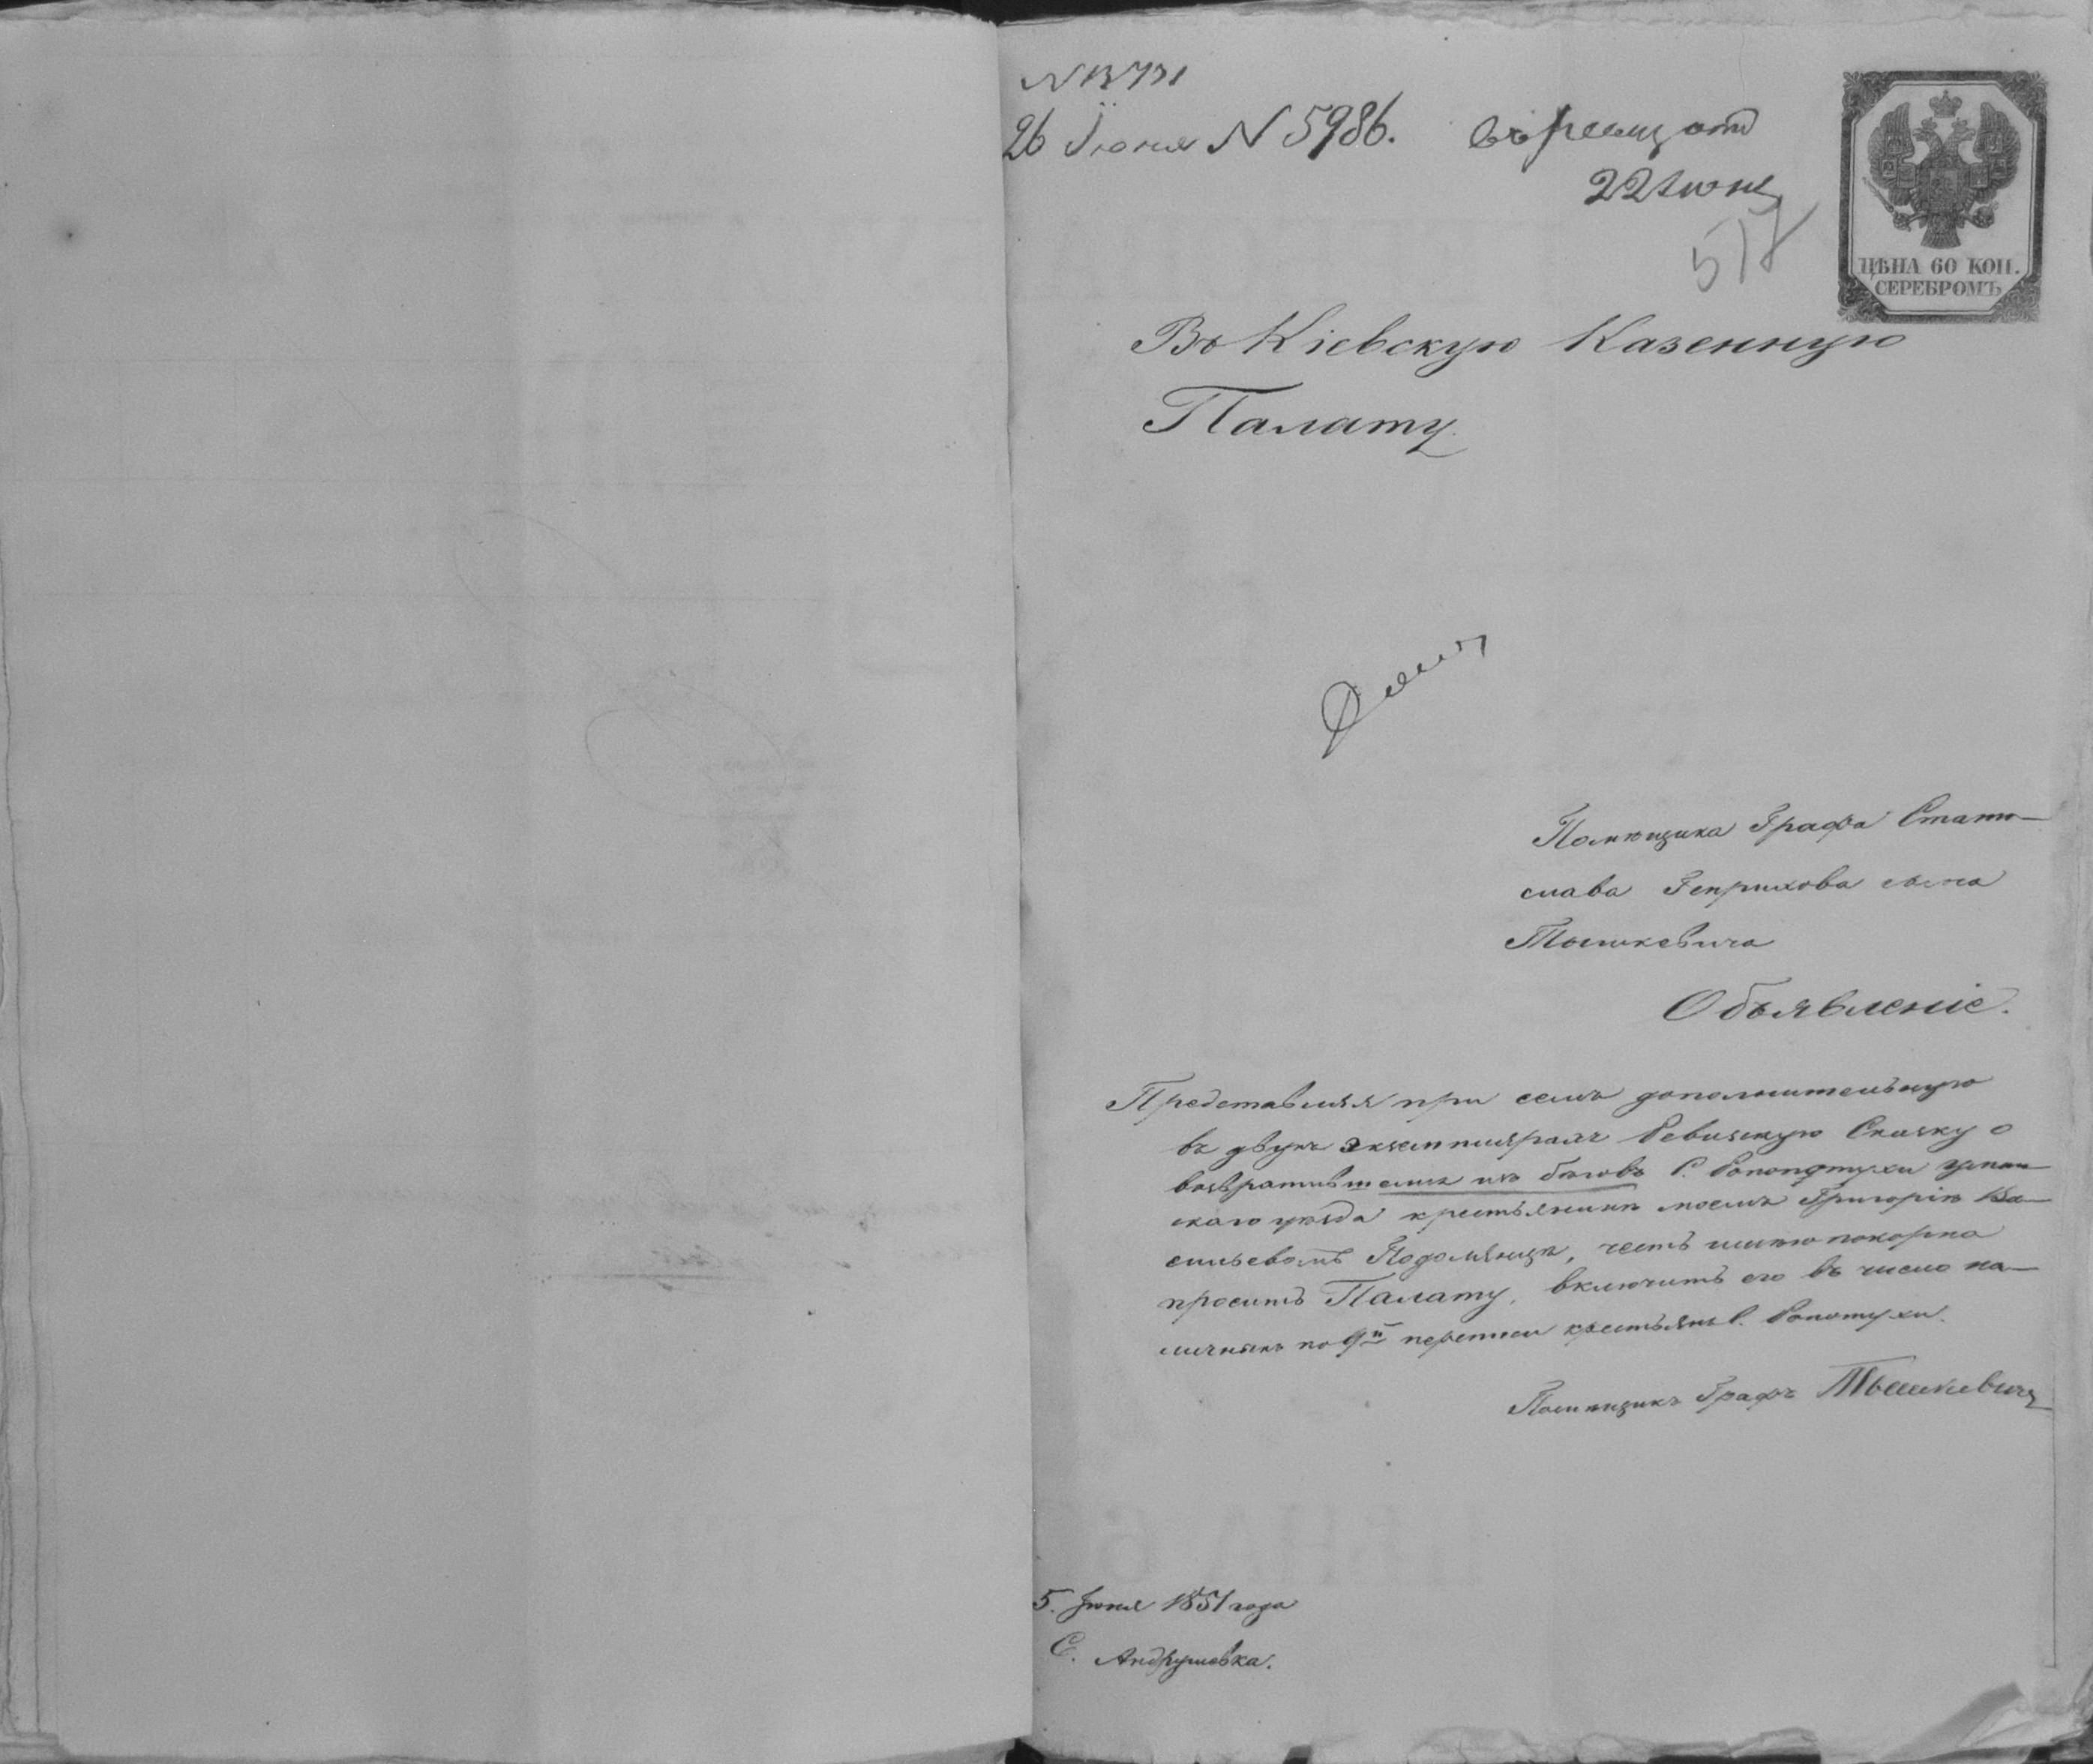 26 Іюня N 5986.
22 Июня
517
ЦѢНА 60 КОП.
СЕРЕБРОМЪ
Въ Кіевскую Казенную
Палату
Помѣщика Графа Стани-
слава Генрихова сына
Тышкевича
Объявленіе.
Представляя при семъ дополнительную
въ двухъ экземплярахъ Ревизскую Сказку о
возвратившемся изъ бѣговъ С.
скаго уѣзда крестьянинѣ моемъ Григоріѣ Ва-
сильевомъ Подолянцѣ, честь имѣю покорно
просить Палату, включить его въ число на-
личныхъ по 9й переписи крестьянъ С. Ропотухи.
Помѣщикъ Графъ Тышкевичъ
5. Іюня 1851 года
С. Андрушевка.